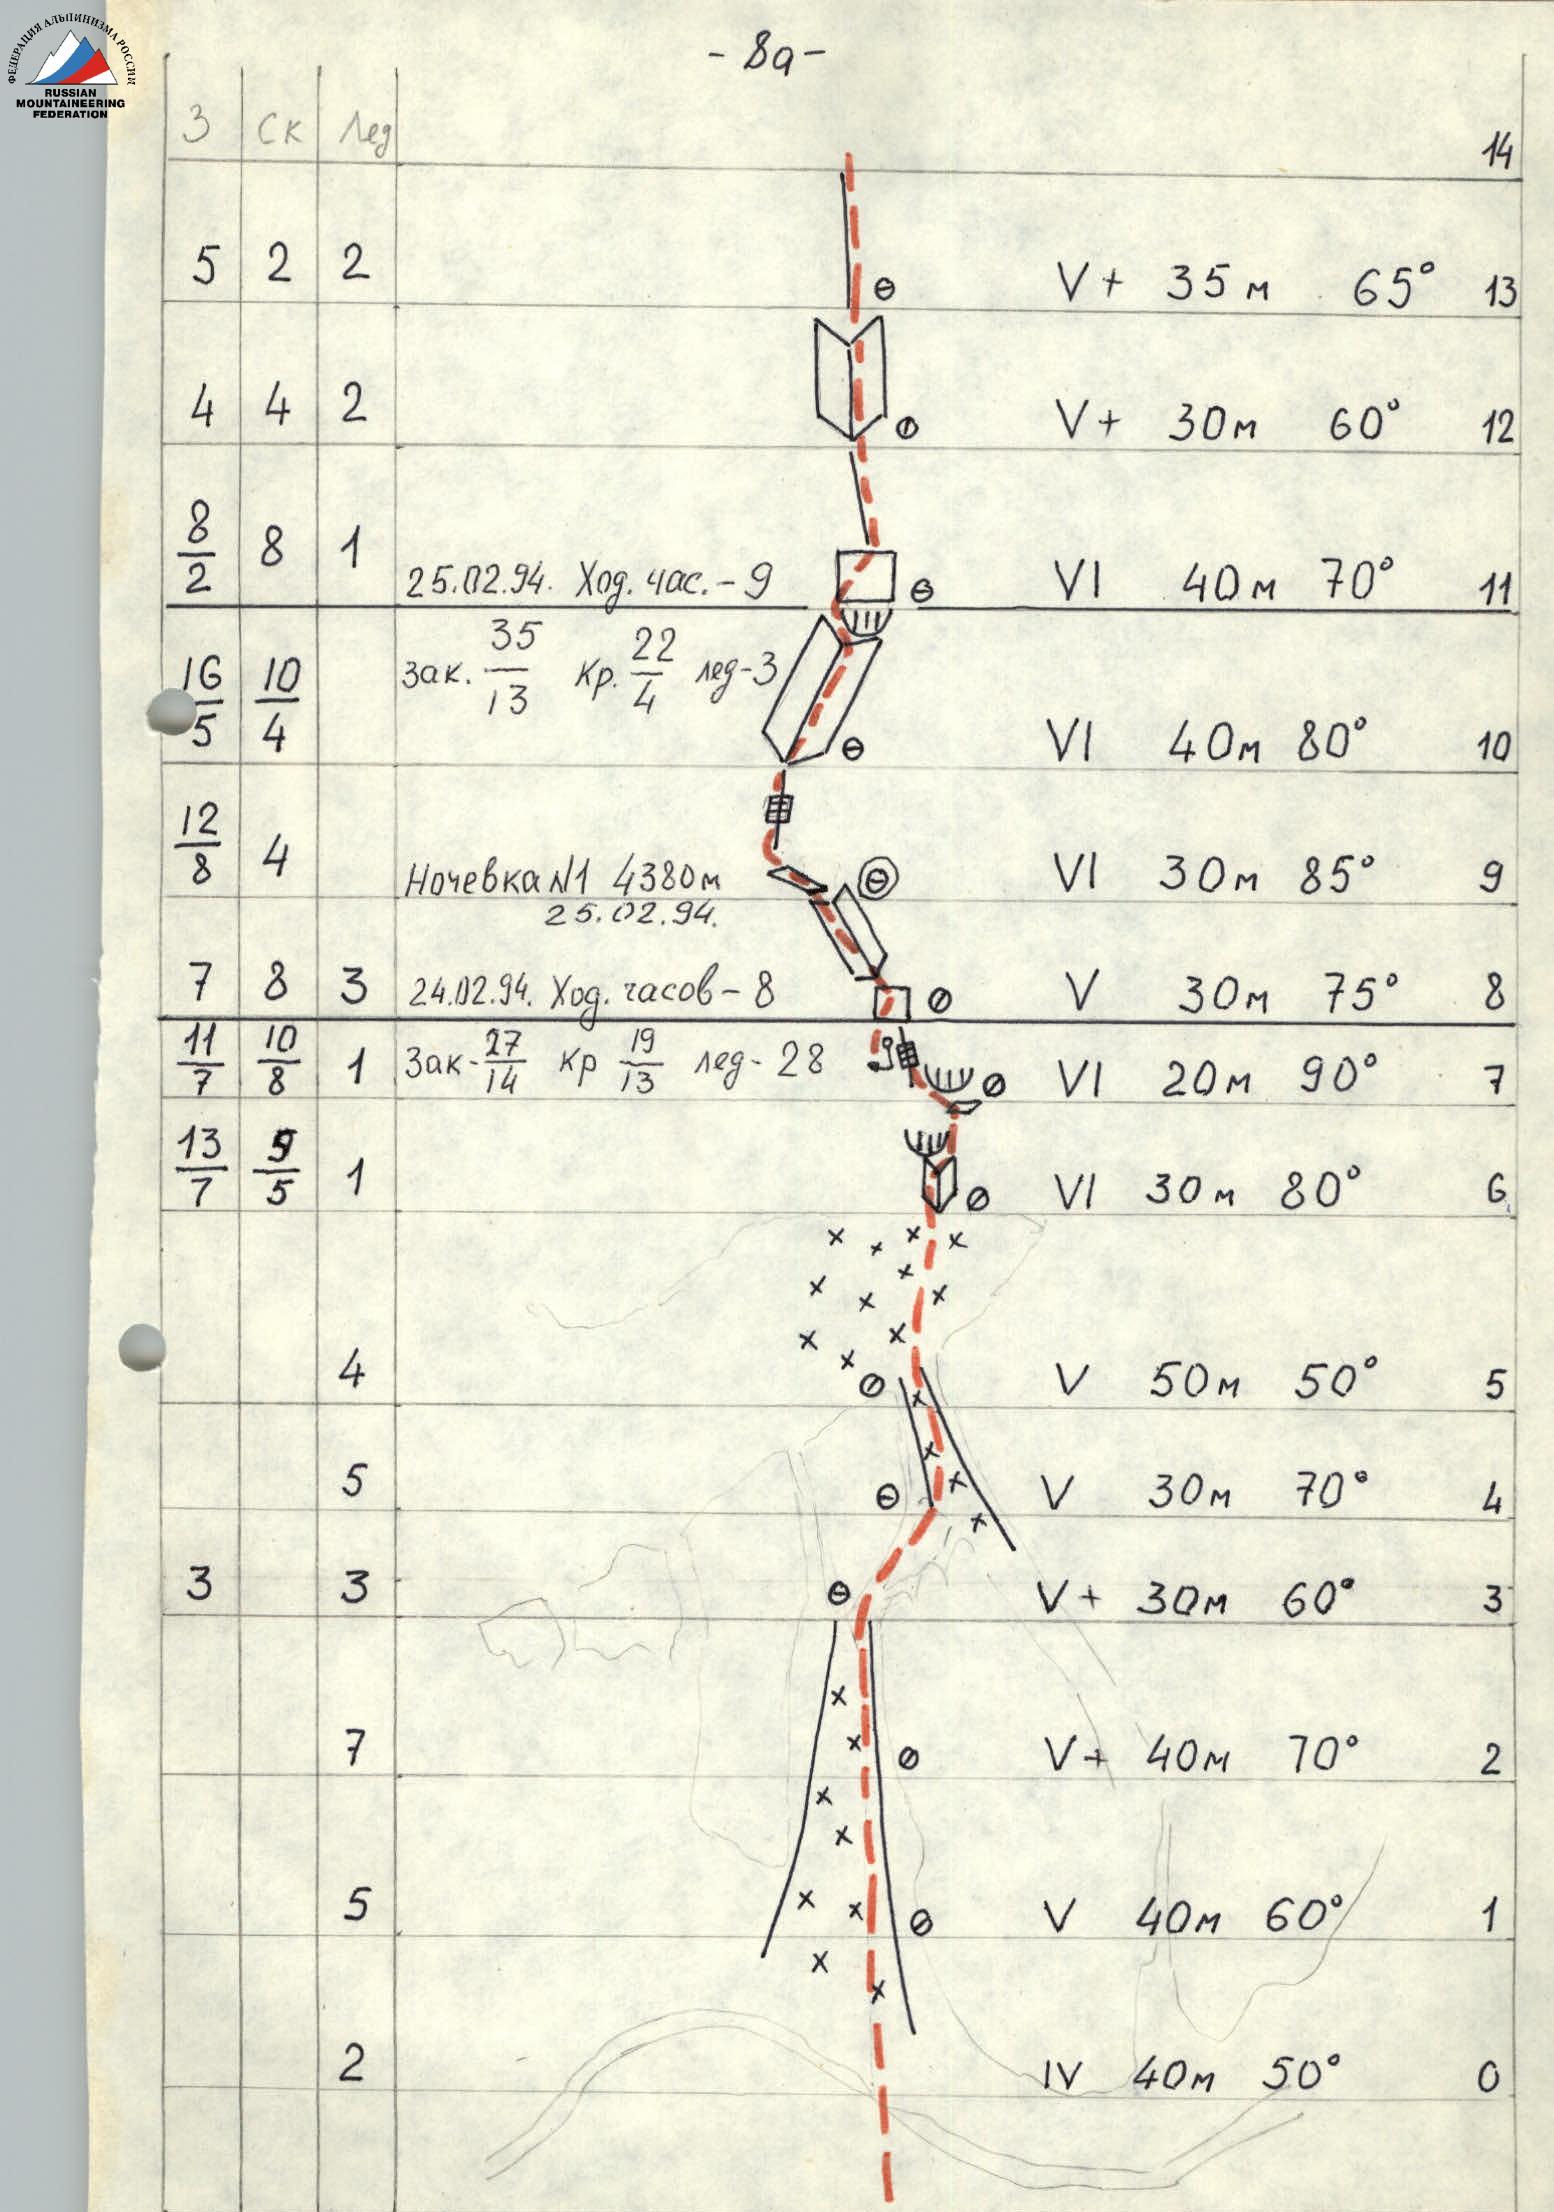 - 8а -
ФЕДЕРАЦИЯ АЛЬПИНИЗМА РОССИИ
RUSSIAN
MOUNTAINEERING
FEDERATION
З Ск Лед 14
5 2 2 V+ 35м 65° 13
4 4 2 V+ 30м 60° 12
8/2 8 1 25.02.94. Ход. час. - 9 VI 40м 70° 11
16/5 10/4 Зак. 35/13 Кр. 22/4 лед-3 VI 40м 80° 10
12/8 4 Ночевка N1 4380м VI 30м 85° 9
25.02.94.
7 8 3 24.02.94. Ход. часов - 8 V 30м 75° 8
11/7 10/8 1 Зак - 27/14 Кр 19/13 лед - 28 VI 20м 90° 7
13/7 9/5 1 VI 30м 80° 6
4 V 50м 50° 5
5 V 30м 70° 4
3 3 V+ 30м 60° 3
7 V+ 40м 70° 2
5 V 40м 60° 1
2 IV 40м 50° 0